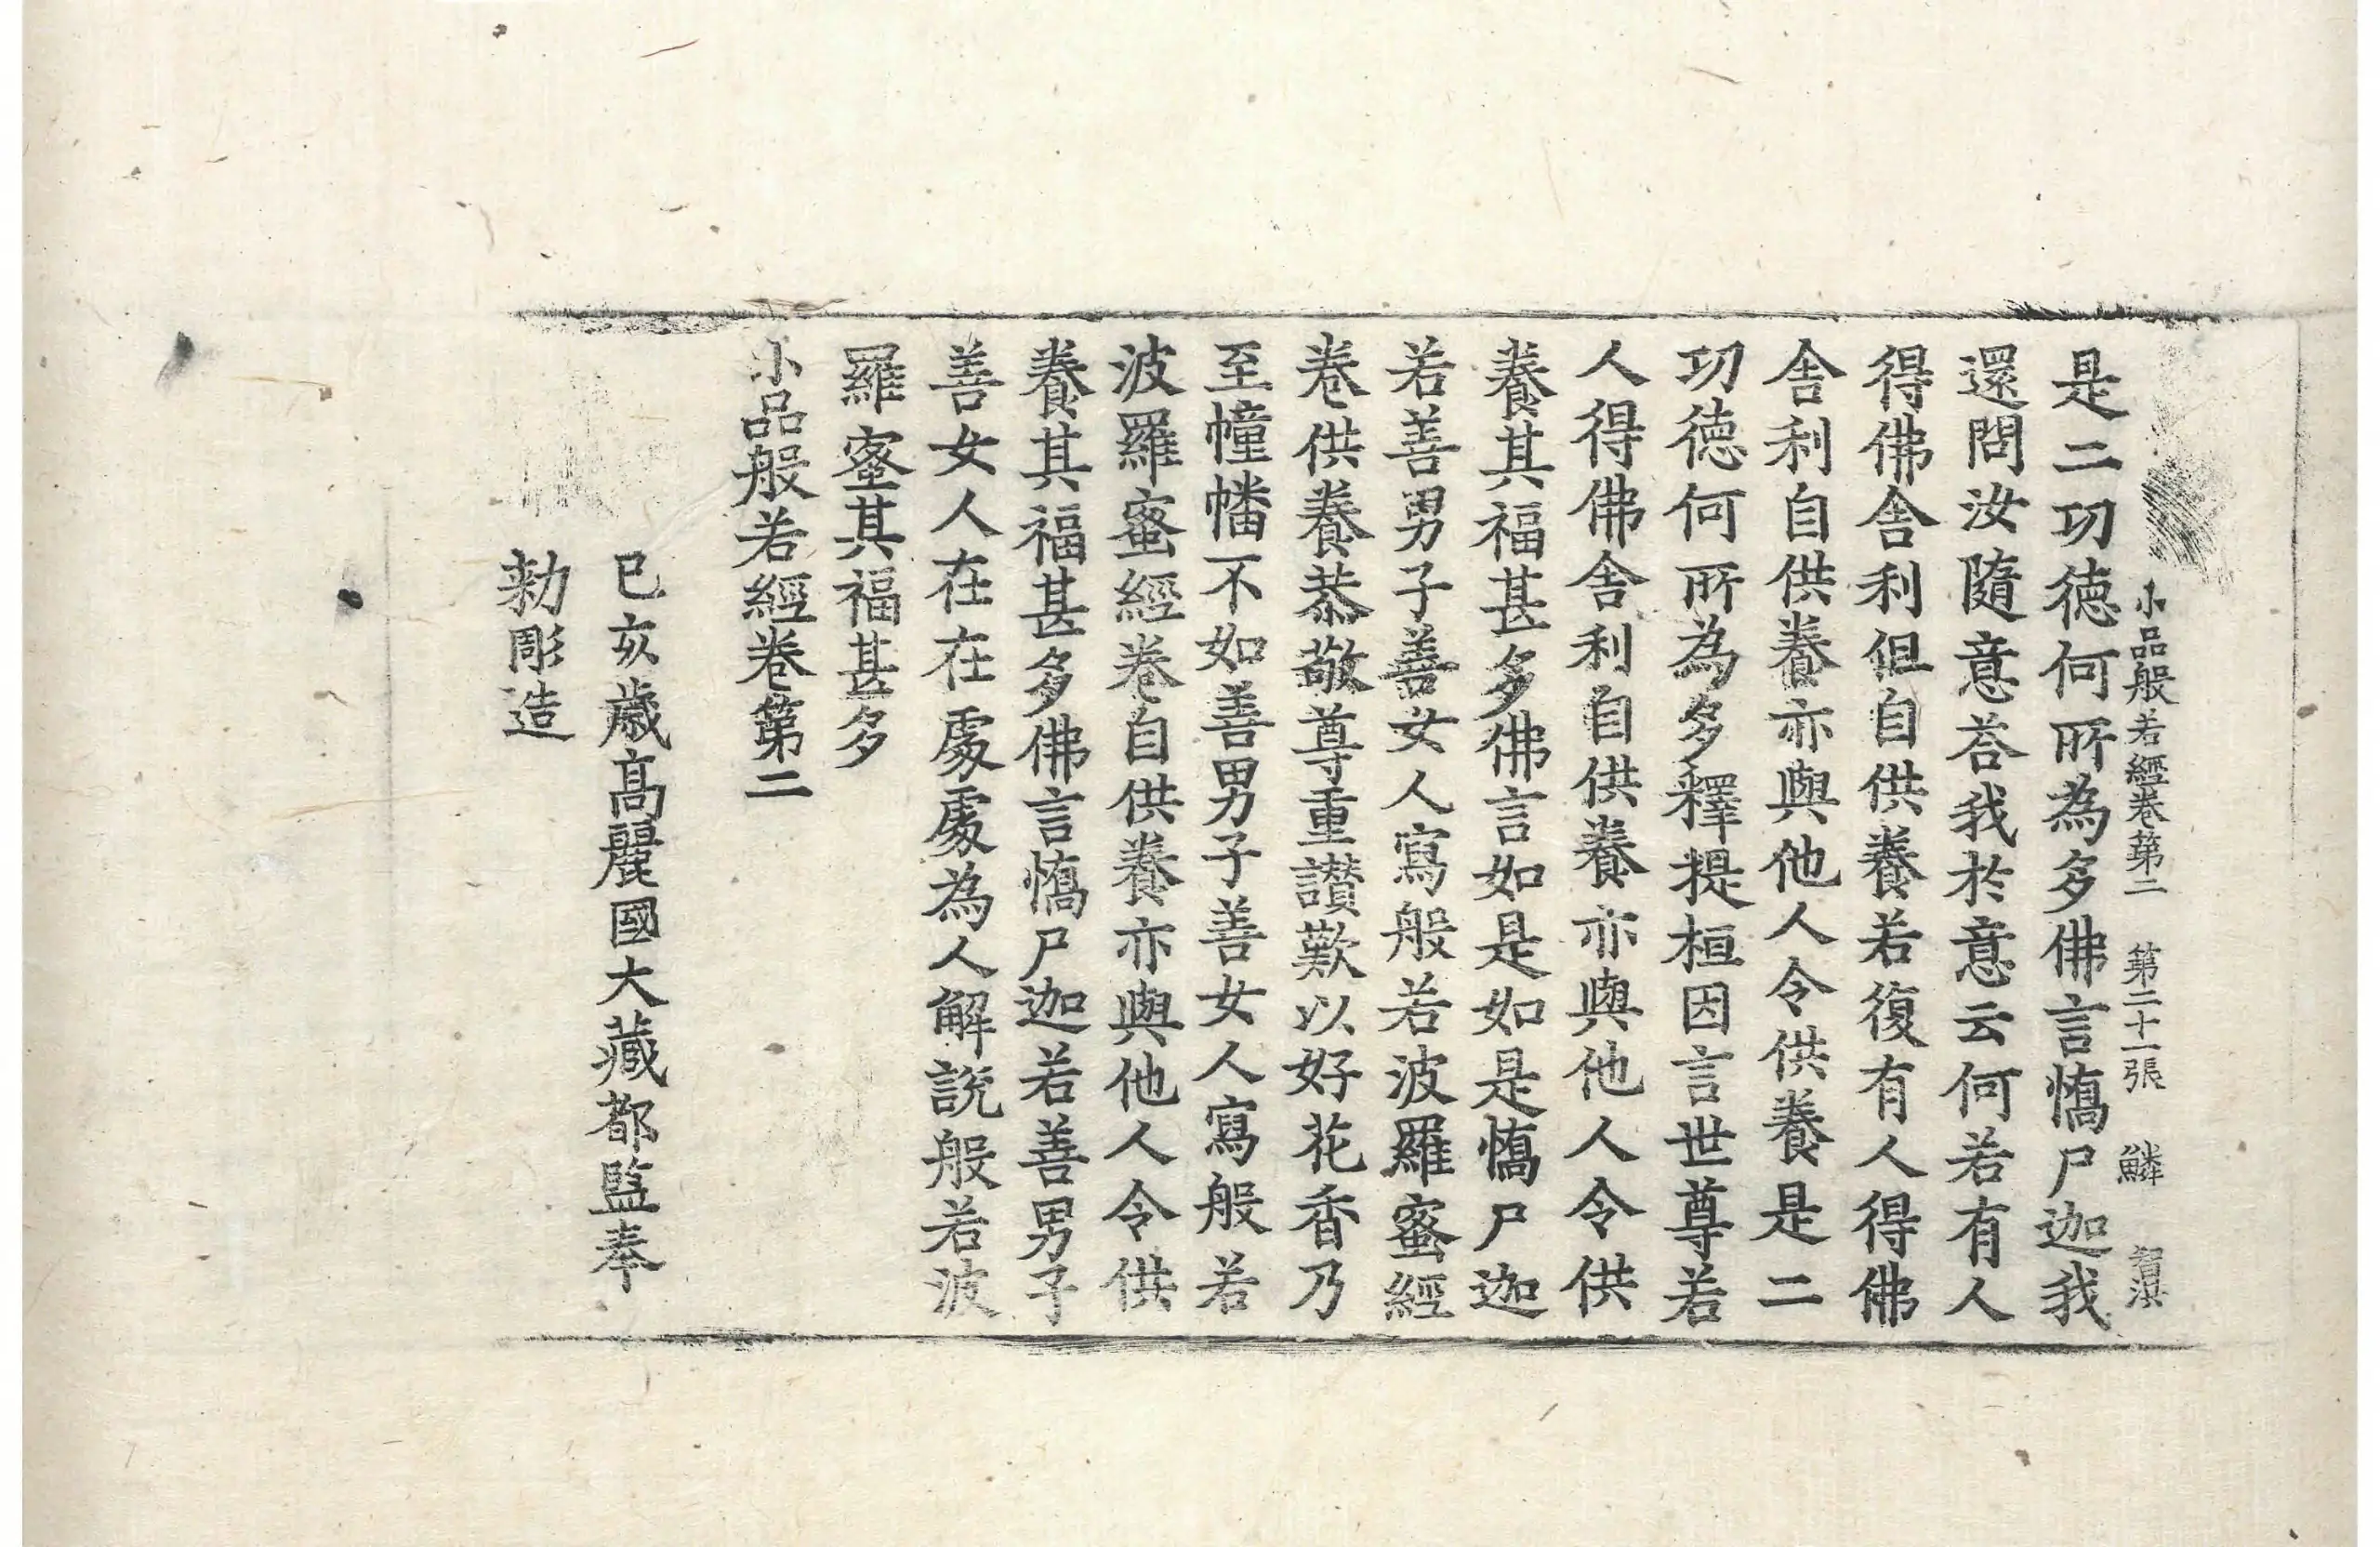 小品般若經卷第二 第二十一張 鱗 智淇
是二功德何所為多佛言憍尸迦我
還問汝隨意荅我於意云何若有人
得佛舍利但自供養若復有人得佛
舍利自供養亦與他人令供養是二
功德何所為多釋提桓因言世尊若
人得佛舍利自供養亦與他人令供
養其福甚多佛言如是如是憍尸迦
若善男子善女人寫般若波羅蜜經
卷供養恭敬尊重讃歎以好花香乃
至幢幡不如善男子善女人寫般若
波羅蜜經卷自供養亦與他人令供
養其福甚多佛言憍尸迦若善男子
善女人在在處處為人解說般若波
羅蜜其福甚多
小品般若經卷第二
己亥歲高麗國大藏都監奉
勅彫造